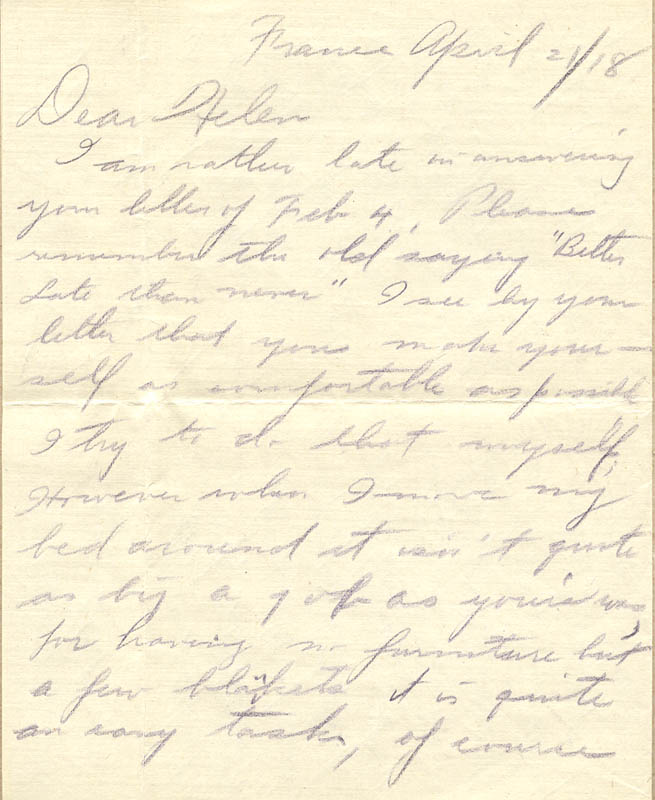 France April 21/18
Dear Helen
I am rather late in answering
your letter of Feb 4, Please
remember the old saying "Better
Late than never" I see by your
letter that you make your-
self as comfortable as possible
I try to do that myself,
However when I move my
bed around it isn't quite
as big a job as your's was,
for having no furniture but
a few blankets it is quite
an easy task, of course